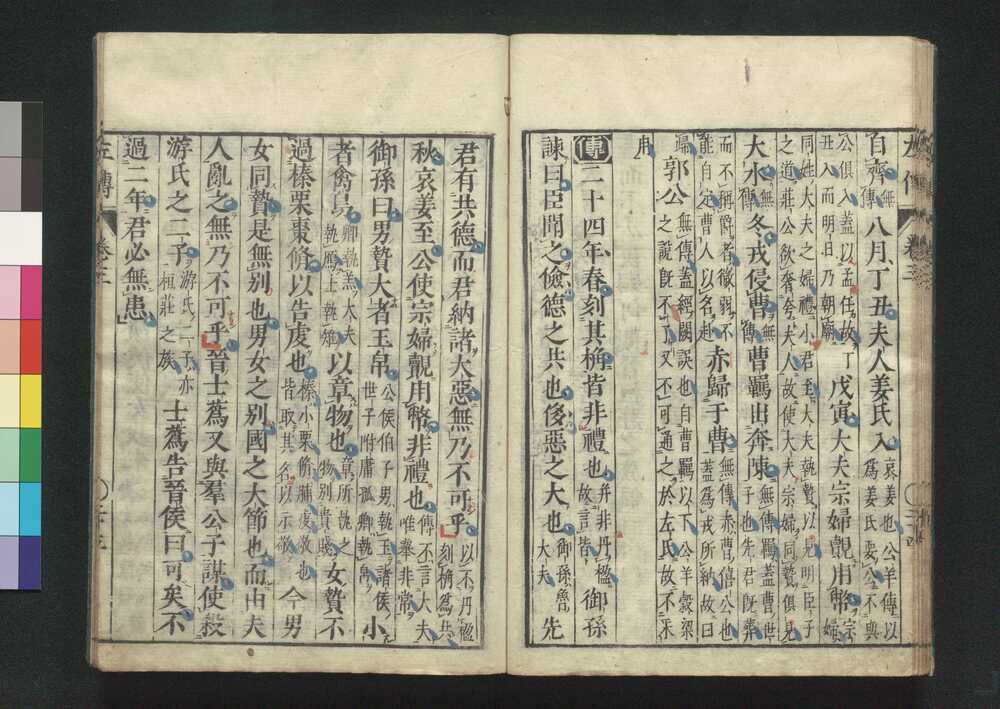 左傳 卷三
自齊無傳八月丁丑夫人姜氏入哀姜也公羊傳以爲姜氏要公不與
公俱入蓋以孟任故丁丑入而明日乃朝廟戊寅大夫宗婦覿用幣宗婦
同姓大夫之婦禮小君至大夫執贄以見明臣子之道莊公欲奢夸夫人故使大夫宗婦同贄俱見
大水無傳冬戎侵曹無傳曹羈出奔陳無傳羈蓋曹世子也先君既葬
而不稱爵者微弱不能自定曹人以名赴赤歸于曹無傳赤曹僖公也蓋爲戎所納故曰
歸郭公無傳蓋經闕誤也自曹羈以下公羊穀梁之說既不了又不可通之於左氏故不采
用
傳二十四年春刻其桷皆非禮也并非丹楹故言皆御孫
諫曰臣聞之儉德之共也侈惡之大也御孫魯大夫先
君有共德而君納諸大惡無乃不可乎以不丹楹刻桷爲共
秋哀姜至公使宗婦覿用幣非禮也傳不言大夫唯舉非常
御孫曰男贄大者玉帛公侯伯子男執玉諸侯世子附庸孤卿執帛小
者禽鳥卿執羔大夫執鴈士執雉以章物也章所執之物別貴賤女贄不
過榛栗棗脩以告虔也榛小栗脩脯虔敬也皆取其名以示敬今男
女同贄是無別也男女之別國之大節也而由夫
人亂之無乃不可乎晉士蔿又與羣公子謀使殺
游氏之二子游氏二子亦桓莊之族士蔿告晉侯曰可矣不
過二年君必無患
左傳 卷三